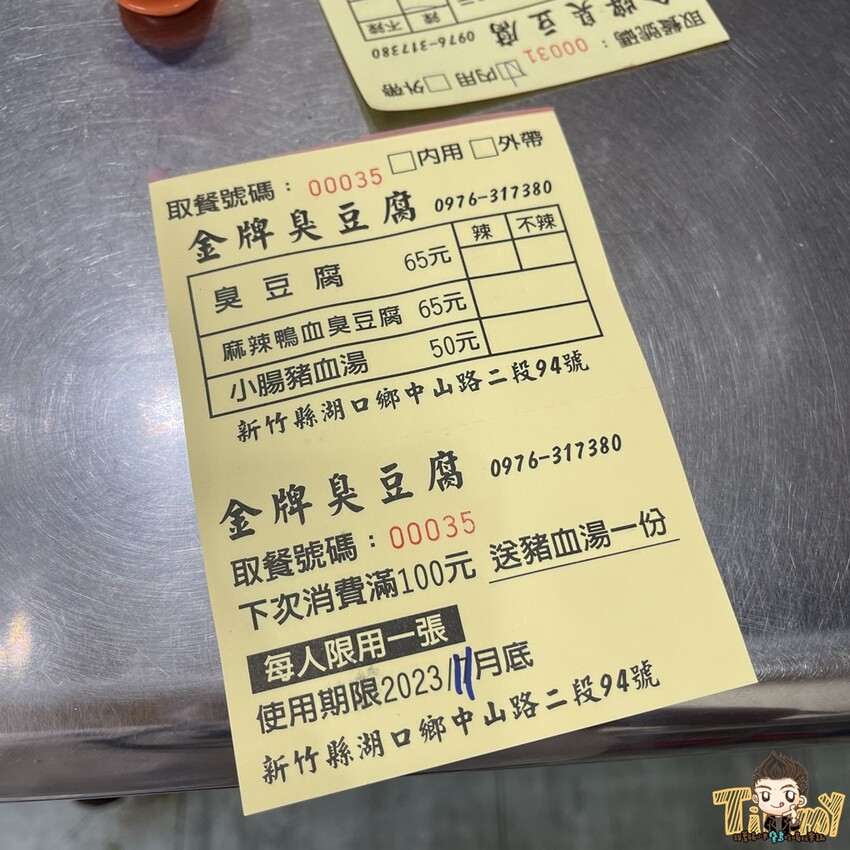 取餐號碼：00031
內用 外帶
金牌臭豆腐 0976-317380
辣 不辣
取餐號碼：00035 內用 外帶
金牌臭豆腐 0976-317380
辣 不辣
臭豆腐 65元
麻辣鴨血臭豆腐 65元
小腸豬血湯 50元
新竹縣湖口鄉中山路二段94號
金牌臭豆腐 0976-317380
取餐號碼：00035
下次消費滿100元 送豬血湯一份
每人限用一張
使用期限2023/11月底
新竹縣湖口鄉中山路二段94號